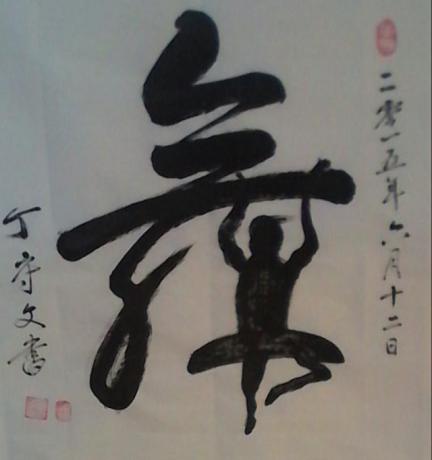 二零一五年六月十二日
舞
丁守文書